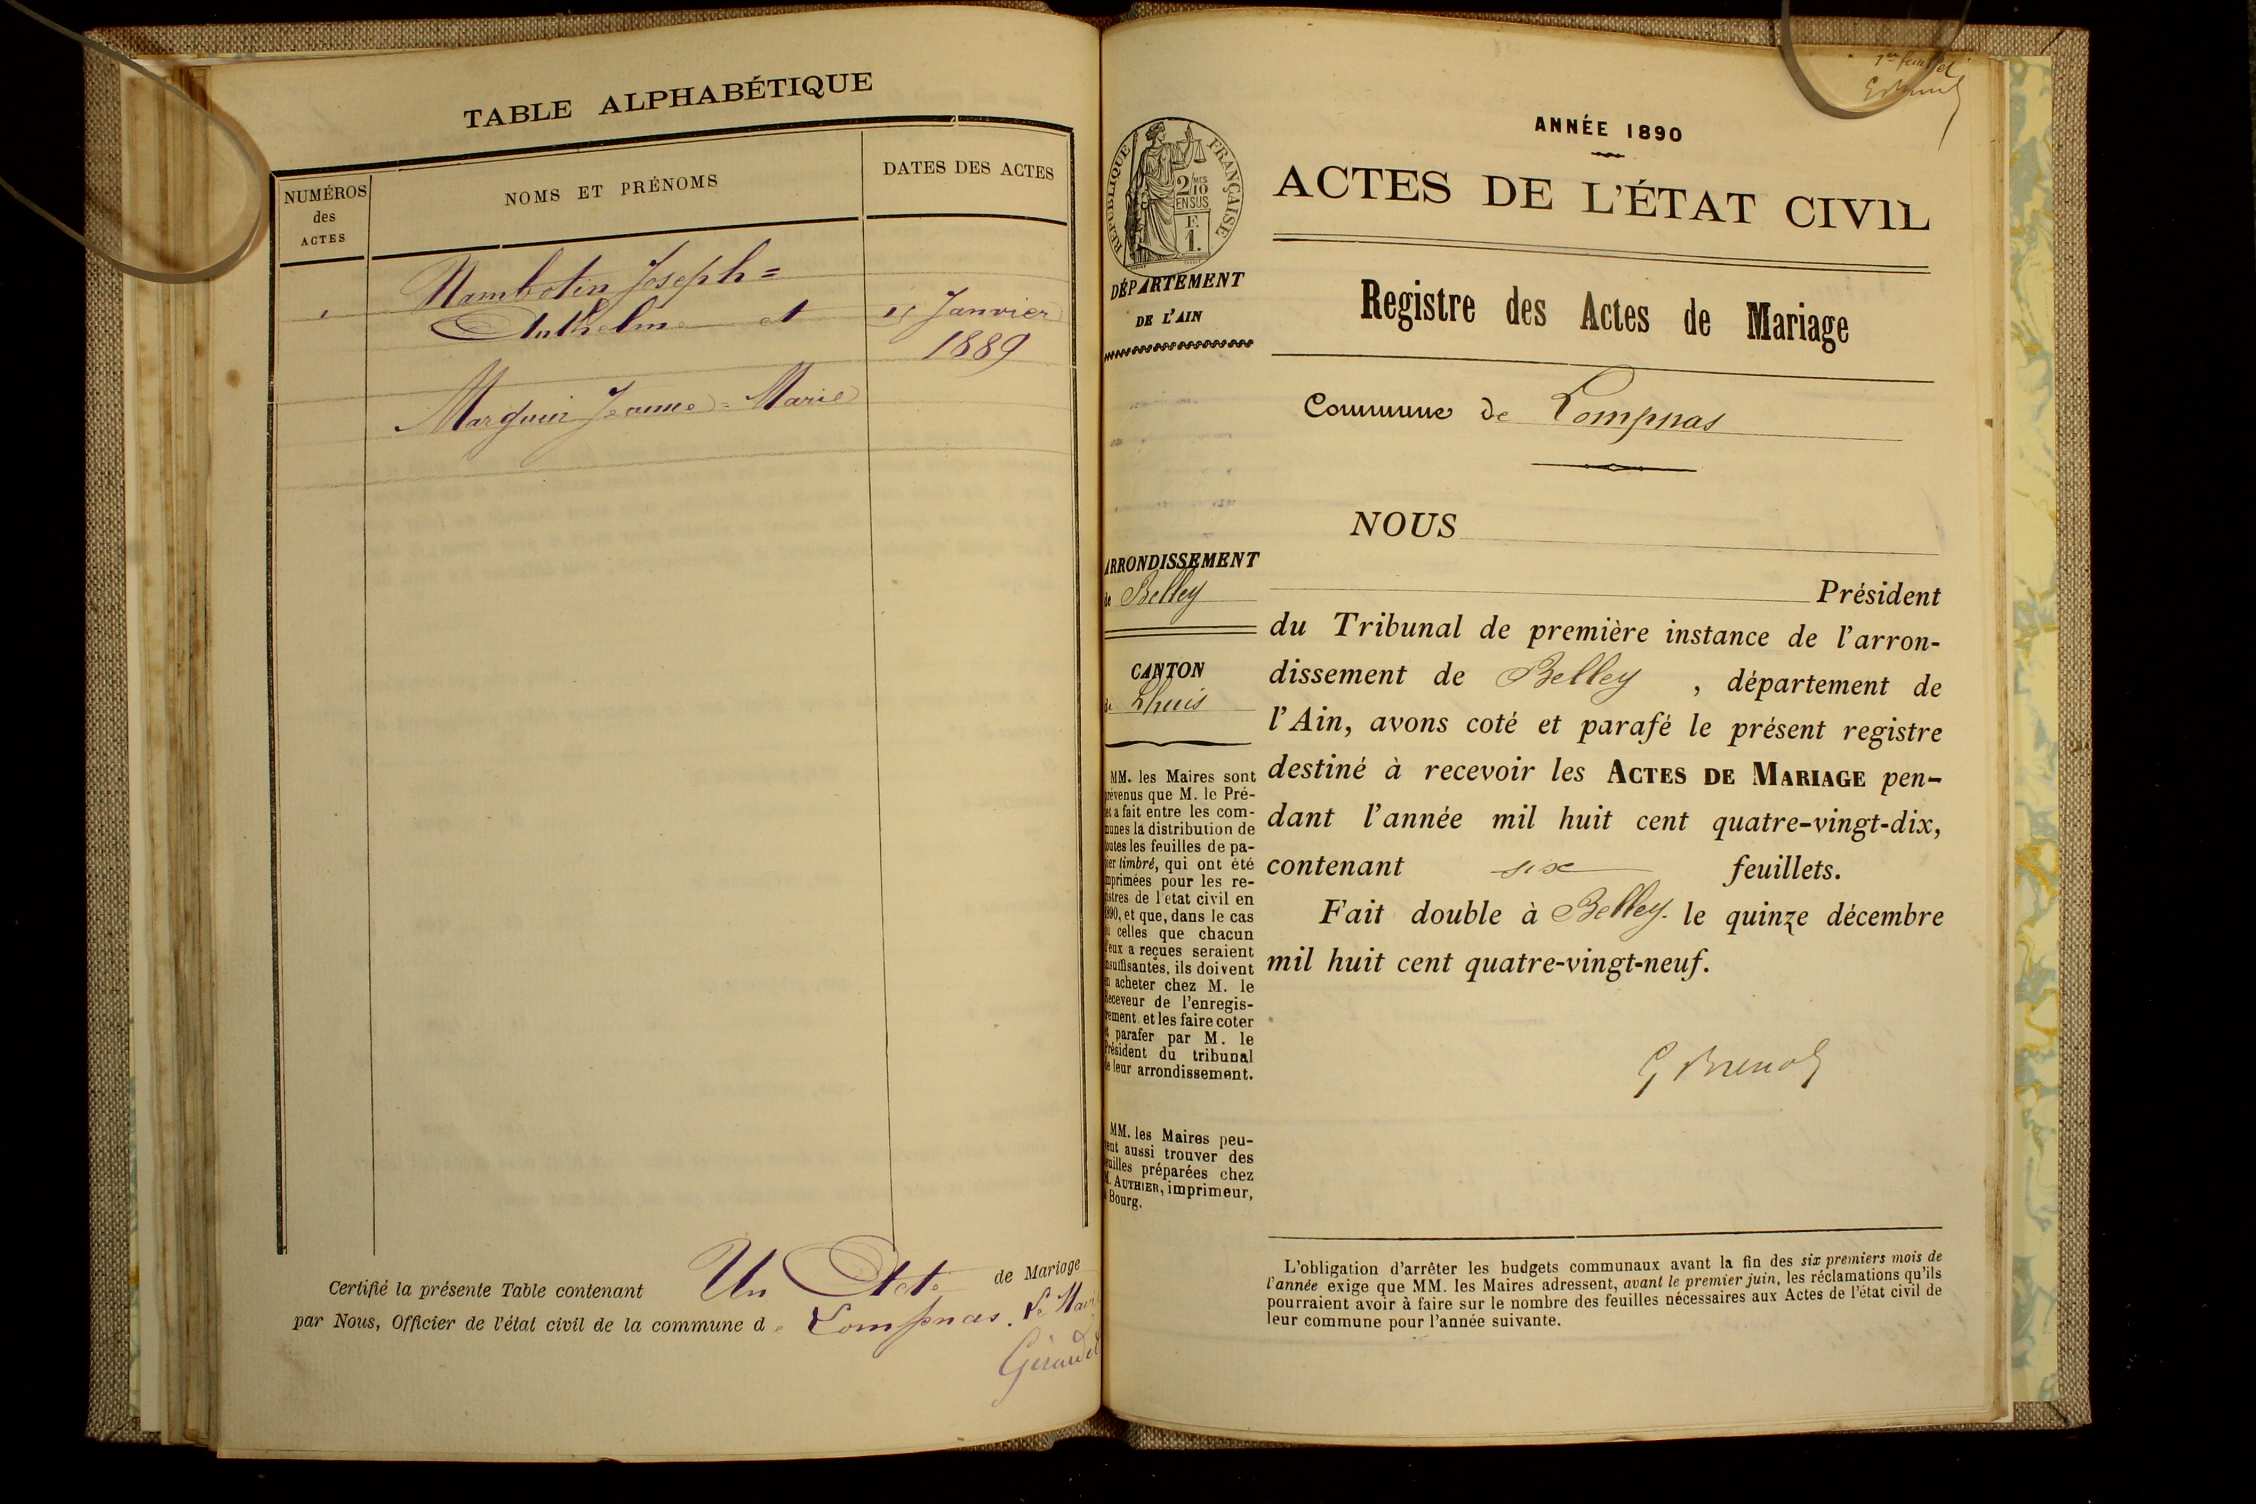 TABLE ALPHABÉTIQUE
NUMÉROS
des
ACTES
NOMS ET PRÉNOMS
DATES DES ACTES
Nambotin Joseph=
Anthelme et
Janvier
1889
Marguin Jeanne=Marie
Certifié la présente Table contenant Un Acte de Mariage
par Nous, Officier de l'état civil de la commune de Lompnas. Le
1er feuillet
ANNÉE 1890
RÉPUBLIQUE FRANÇAISE
2/10
MES
EN SUS
F.
1.
ACTES DE L'ÉTAT CIVIL
DÉPARTEMENT
DE L'AIN
Registre des Actes de Mariage
Commune de Lompnas
NOUS
ARRONDISSEMENT
de Belley
CANTON
de Lhuis
MM. les Maires sont
prévenus que M. le Pré-
et a fait entre les com-
munes la distribution de
toutes les feuilles de pa-
pier timbré, qui ont été
imprimées pour les re-
gistres de l'état civil en
1890, et que, dans le cas
où celles que chacun
d'eux a reçues seraient
insuffisantes, ils doivent
en acheter chez M. le
Receveur de l'enregis-
trement et les faire coter
et parafer par M. le
Président du tribunal
de leur arrondissement.
MM. les Maires peu-
vent aussi trouver des
feuilles préparées chez
M. AUTHIER, imprimeur,
à Bourg.
Président
du Tribunal de première instance de l'arron-
dissement de Belley , département de
l'Ain, avons coté et parafé le présent registre
destiné à recevoir les ACTES DE MARIAGE pen-
dant l'année mil huit cent quatre-vingt-dix,
contenant six feuillets.
Fait double à Belley le quinze décembre
mil huit cent quatre-vingt-neuf.
L'obligation d'arrêter les budgets communaux avant la fin des six premiers mois de
l'année exige que MM. les Maires adressent, avant le premier juin, les réclamations qu'ils
pourraient avoir à faire sur le nombre des feuilles nécessaires aux Actes de l'état civil de
leur commune pour l'année suivante.